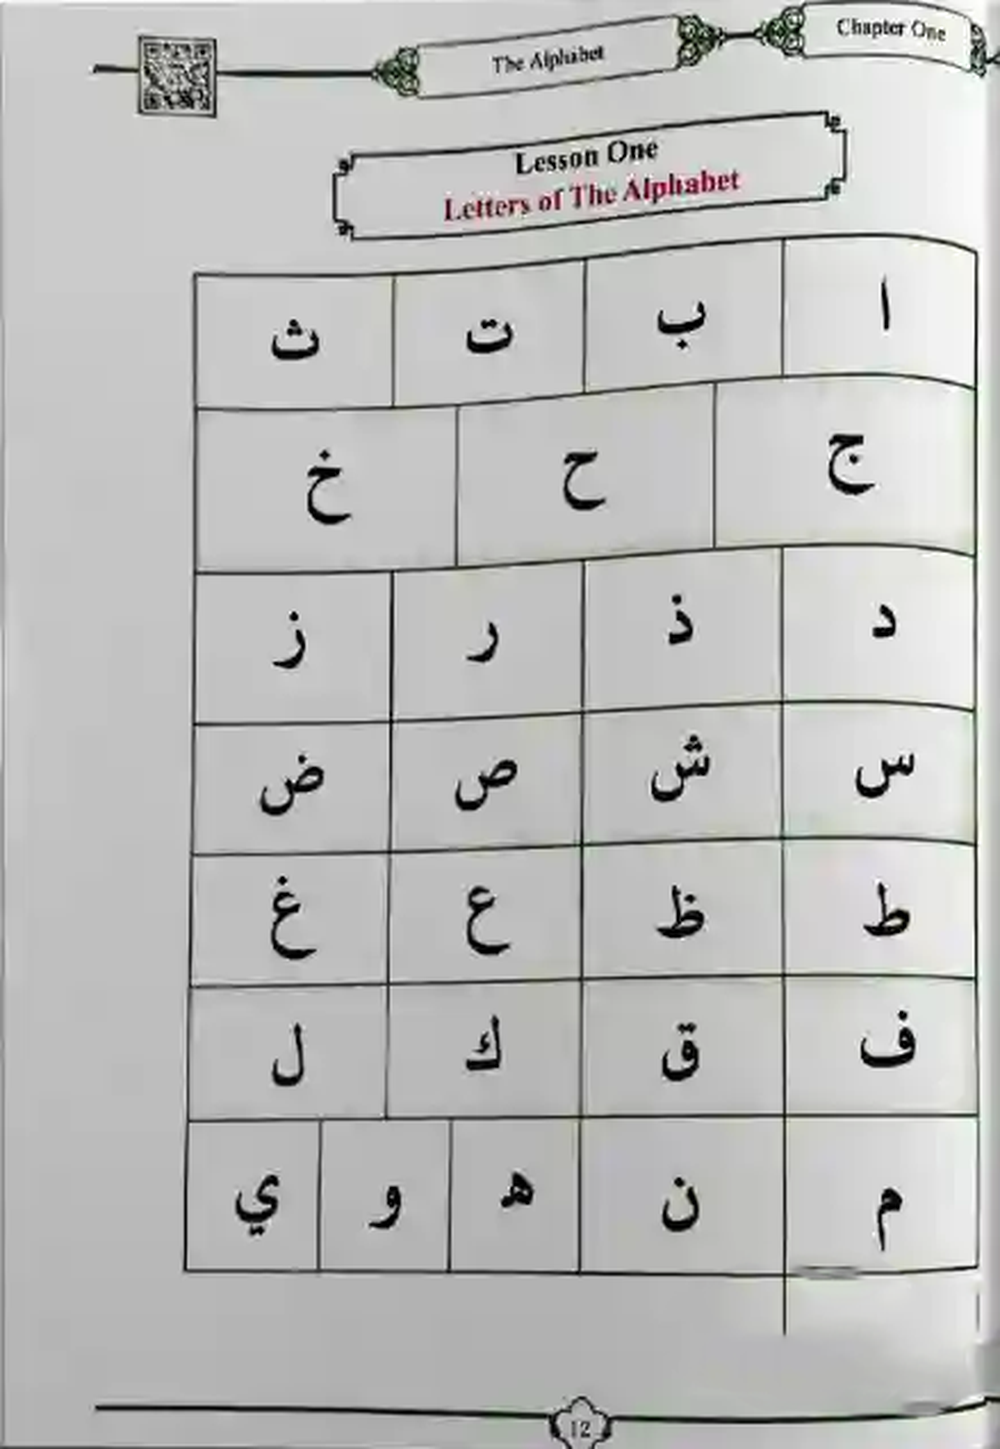 The Alphabet
Chapter One
Lesson One
Letters of The Alphabet
ا ب ت ث
ج ح خ
د ذ ر ز
س ش ص ض
ط ظ ع غ
ف ق ك ل
م ن ه و ي
12